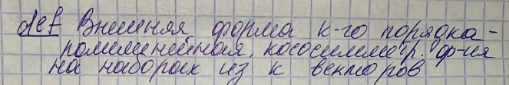 def Внешняя форма к-го порядка -
полилинейная кососиммetр. ф-ия
на наборах из к векторов